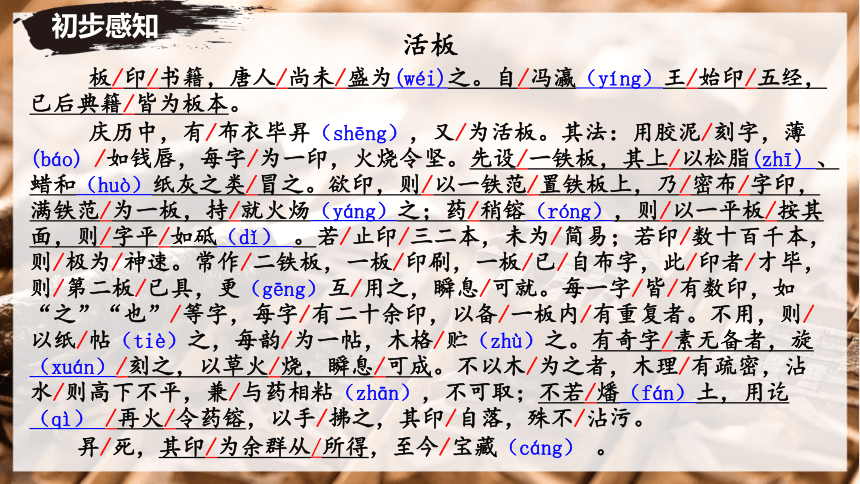 初步感知
活板
板/印/书籍，唐人/尚未/盛为(wéi)之。自/冯瀛（yíng）王/始印/五经，
已后典籍/皆为板本。
庆历中，有/布衣毕昇（shēng），又/为活板。其法：用胶泥/刻字，薄
(báo) /如钱唇，每字/为一印，火烧令坚。先设/一铁板，其上/以松脂(zhī)、
蜡和（huò）纸灰之类/冒之。欲印，则/以一铁范/置铁板上，乃/密布/字印，
满铁范/为一板，持/就火炀（yáng）之；药/稍镕（róng），则/以一平板/按其
面，则/字平/如砥（dǐ） 。若/止印/三二本，未为/简易；若印/数十百千本，
则/极为/神速。常作/二铁板，一板/印刷，一板/已/自布字，此/印者/才毕，
则/第二板/已具，更（gēng）互/用之，瞬息/可就。每一字/皆/有数印，如
“之”“也”/等字，每字/有二十余印，以备/一板内/有重复者。不用，则/
以纸/帖（tiè）之，每韵/为一帖，木格/贮（zhù）之。有奇字/素无备者，旋
（xuán）/刻之，以草火/烧，瞬息/可成。不以木/为之者，木理/有疏密，沾
水/则高下不平，兼/与药相粘（zhān），不可取；不若/燔（fán）土，用讫
（qì） /再火/令药镕，以手/拂之，其印/自落，殊不/沾污。
昇/死，其印/为余群从/所得，至今/宝藏（cáng） 。